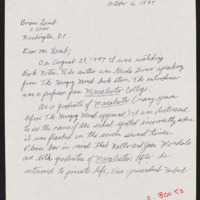 October 6, 1997
Brian Lamb
C-SPAN
Washington, D.C.
Dear Mr. Lamb:
On August 23, 1997 I was watching
Book Notes. The author was speaking
from The Hungry Mind book store. The introducer
was a professor from Macalester College.
As a graduate of Macalester (many years
before The Hungry Mind opened) I was distressed
to see the name of the school spelled incorrectly when
it was flashed on the screen several times.
Please bear in mind that Walter and Joan Mondale
are both graduates of Macalester. After he
returned to private life, Vice-president Hubert
BOOKS